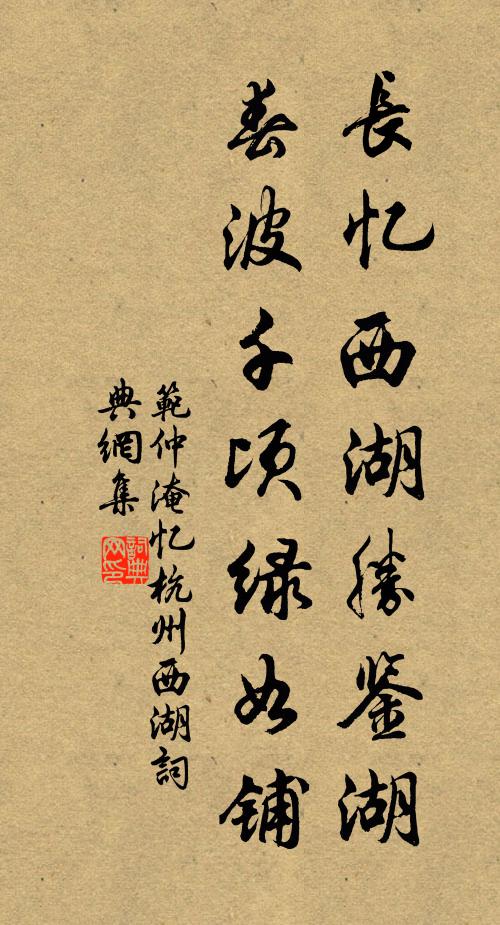 長忆西湖勝鉴湖
春波千頃绿如铺
範仲淹忆杭州西湖詞
典網集
詞典
网印